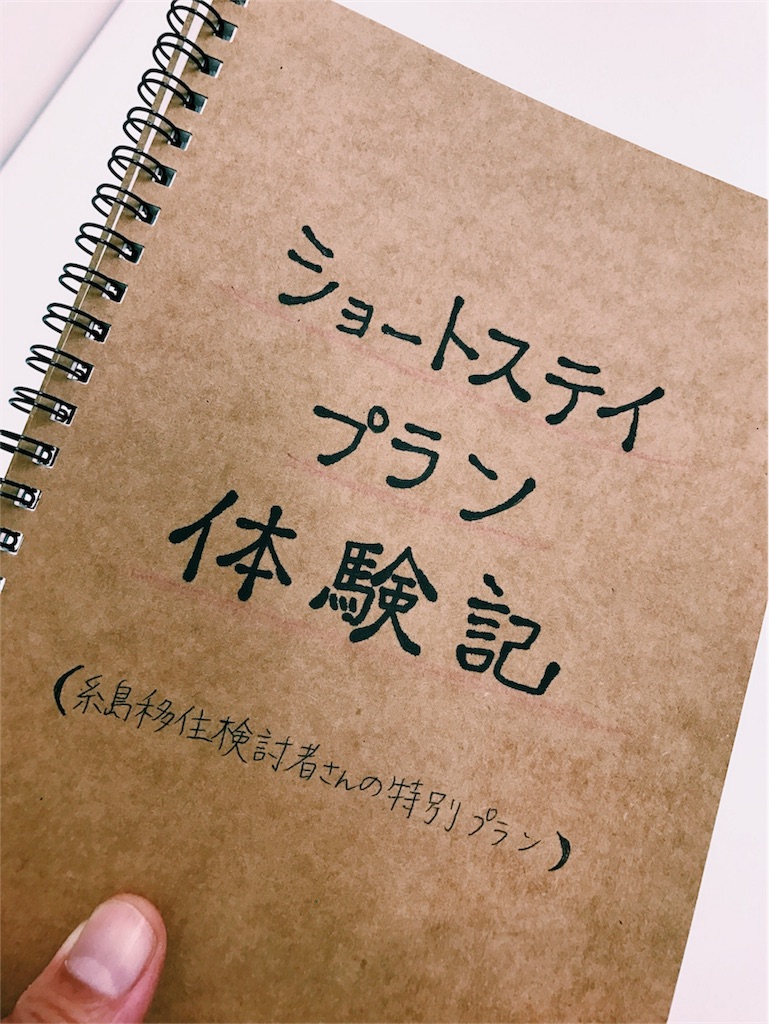 ショートステイ
プラン
体験記
(糸島移住検討者さんの特別プラン)